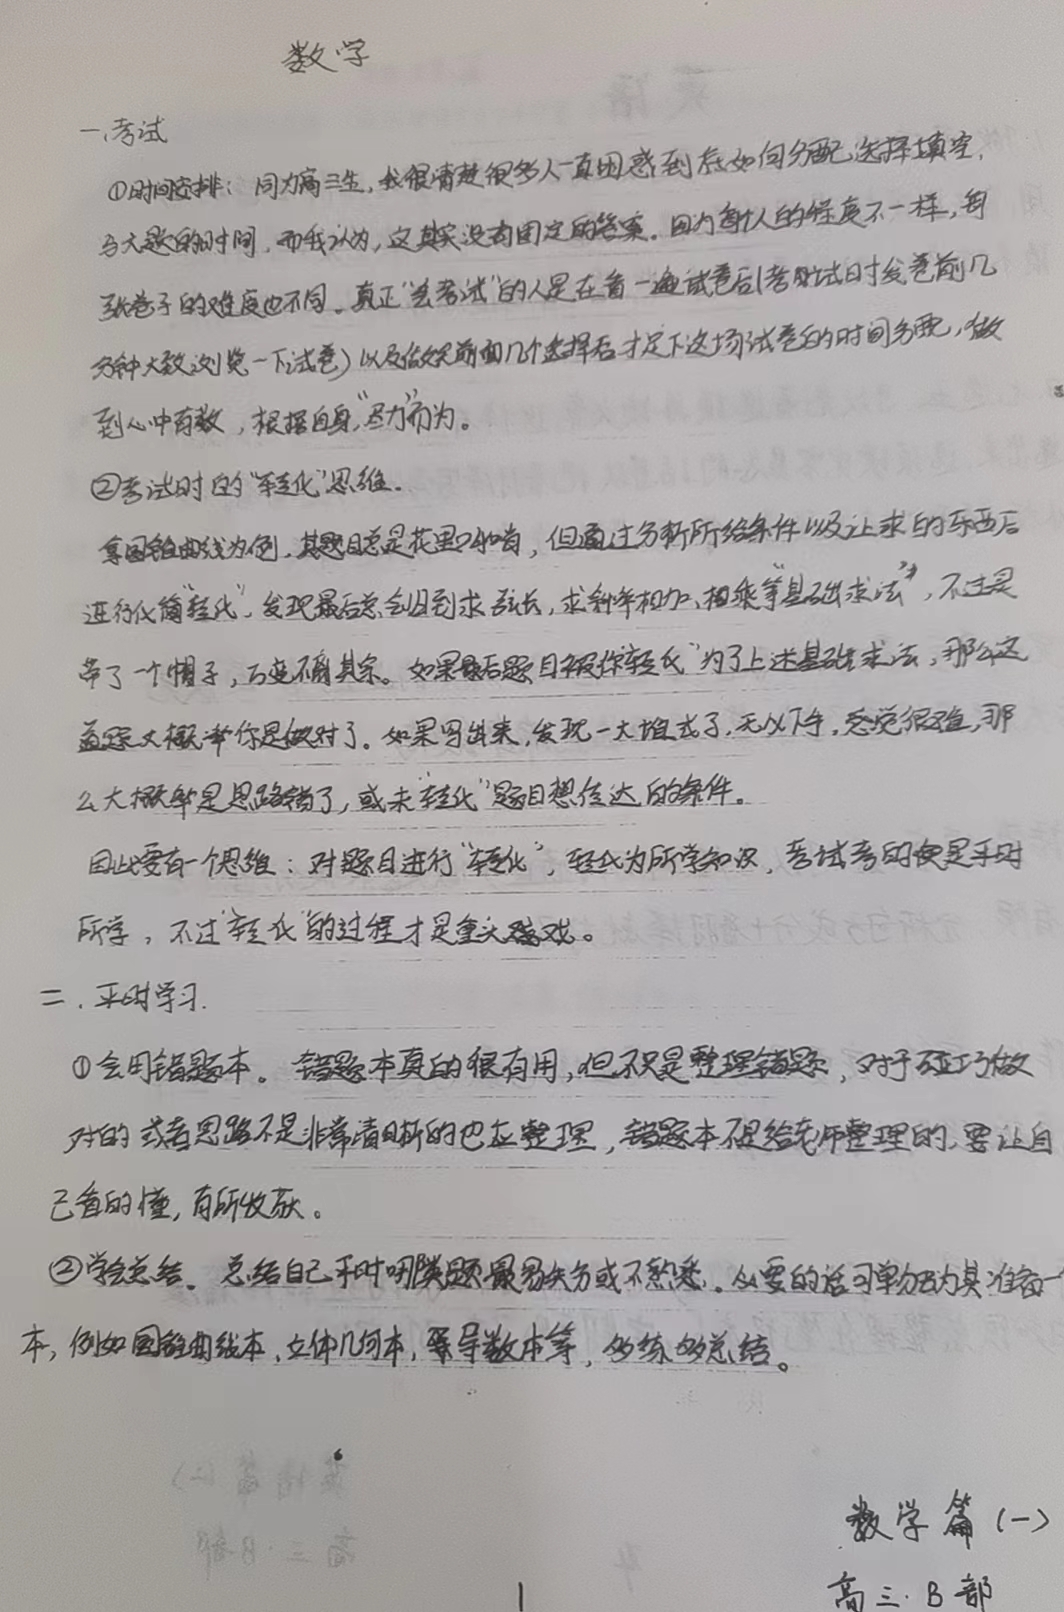 数学
一、考试
①时间安排：同为高三生，我很清楚很多人一直困惑到底如何分配选择填空，
与大题的时间，而我认为，这其实没有固定的答案。因为每个人的程度不一样，每
张卷子的难度也不同。真正“会考试”的人是在看一遍试卷后(考试时发卷前几
分钟大致浏览一下试卷)以及做完前面几个选择后才定下这场试卷的时间分配，做
到心中有数，根据自身，“尽力”而为。
②考试时的“转化”思维.
拿圆锥曲线为例，其题目总是花里胡哨，但通过分析所给条件以及让求的东西后
进行化简“转化”，发现最后总会归到求弦长，求斜率相加、相乘等“基础求法”，不过是
带了一个帽子，万变不离其宗。如果最后题目被你“转化”为了上述基础求法，那么这
道题大概率你是做对了。如果写出来，发现一大堆式子，无从下手，感觉很难，那
么大概率是思路错了，或未“转化”题目想传达的条件。
因此要有一个思维：对题目进行“转化”，转化为所学知识，考试考的便是平时
所学，不过“转化”的过程才是重头戏。
二．平时学习.
①会用错题本。错题本真的很有用，但不只是整理错题，对于碰巧做
对的或者思路不是非常清晰的也应整理，错题本不是给老师整理的，要让自
己看的懂，有所收获。
②学会总结。总结自己平时哪类题最易失分或不熟悉。必要的话可单独为其准备一
本，例如圆锥曲线本、立体几何本，导数本等，多练多总结。
数学篇(一)
高三·B部
1